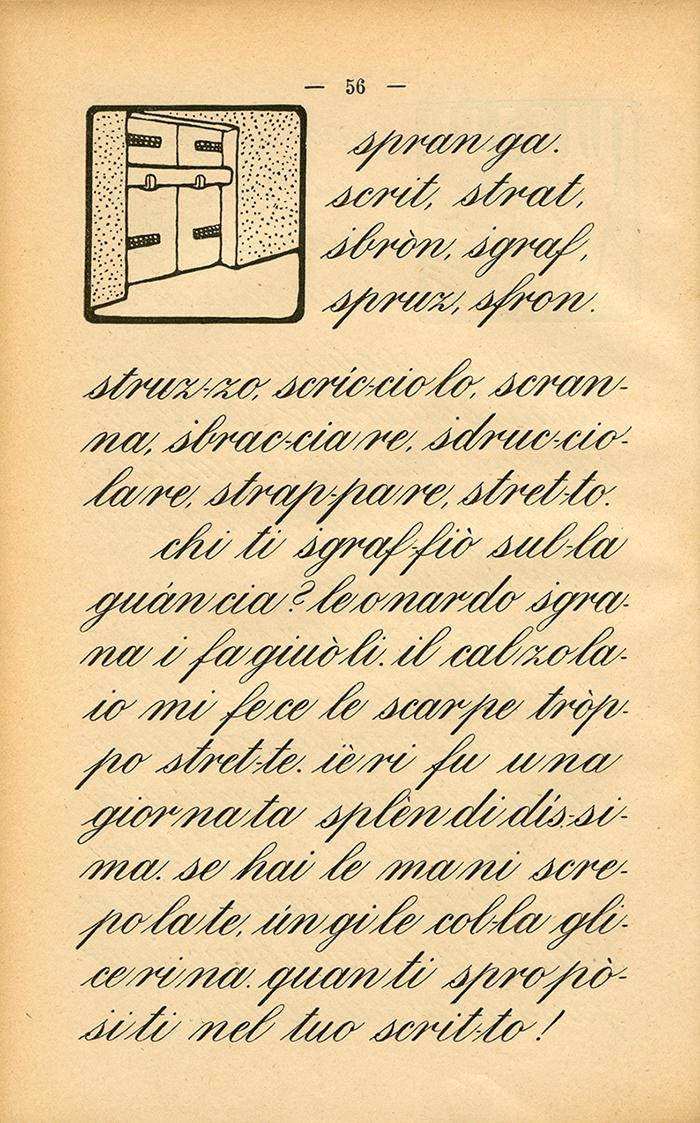 — 56 —
spran ga.
scrit, strat,
sbròn, sgraf,
spruz, sfron.
struz-zo, scríc-cio lo, scran-
na, sbrac-cia re, sdruc-cio-
la re, strap-pa re, stret-to.
chi ti sgraf-fiò sul-la
guán cia? le o nar do sgra-
na i fa giuò li. il cal zo la-
io mi fe ce le scar pe tròp-
po stret-te. iè ri fu u na
gior na ta splèn di dís-si-
ma. se hai le ma ni scre-
po la te, ún gi le col-la gli-
ce ri na. quan ti spro pò-
si ti nel tuo scrit-to!